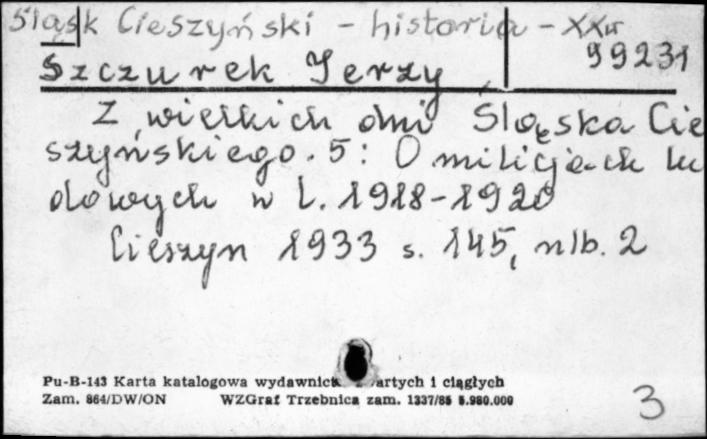 Śląsk Cieszyński - historia - XXw
99231
Szczurek Jerzy
Z wielkich dni Śląska Cie
szyńskiego. 5: O milicjach lu
dowych w l. 1918-1920
Cieszyn 1933 s. 145, nlb. 2
Pu-B-143 Karta katalogowa wydawnictw zwartych i ciągłych
Zam. 864/DW/ON WZGraf Trzebnica zam. 1337/85 5.980.000
3